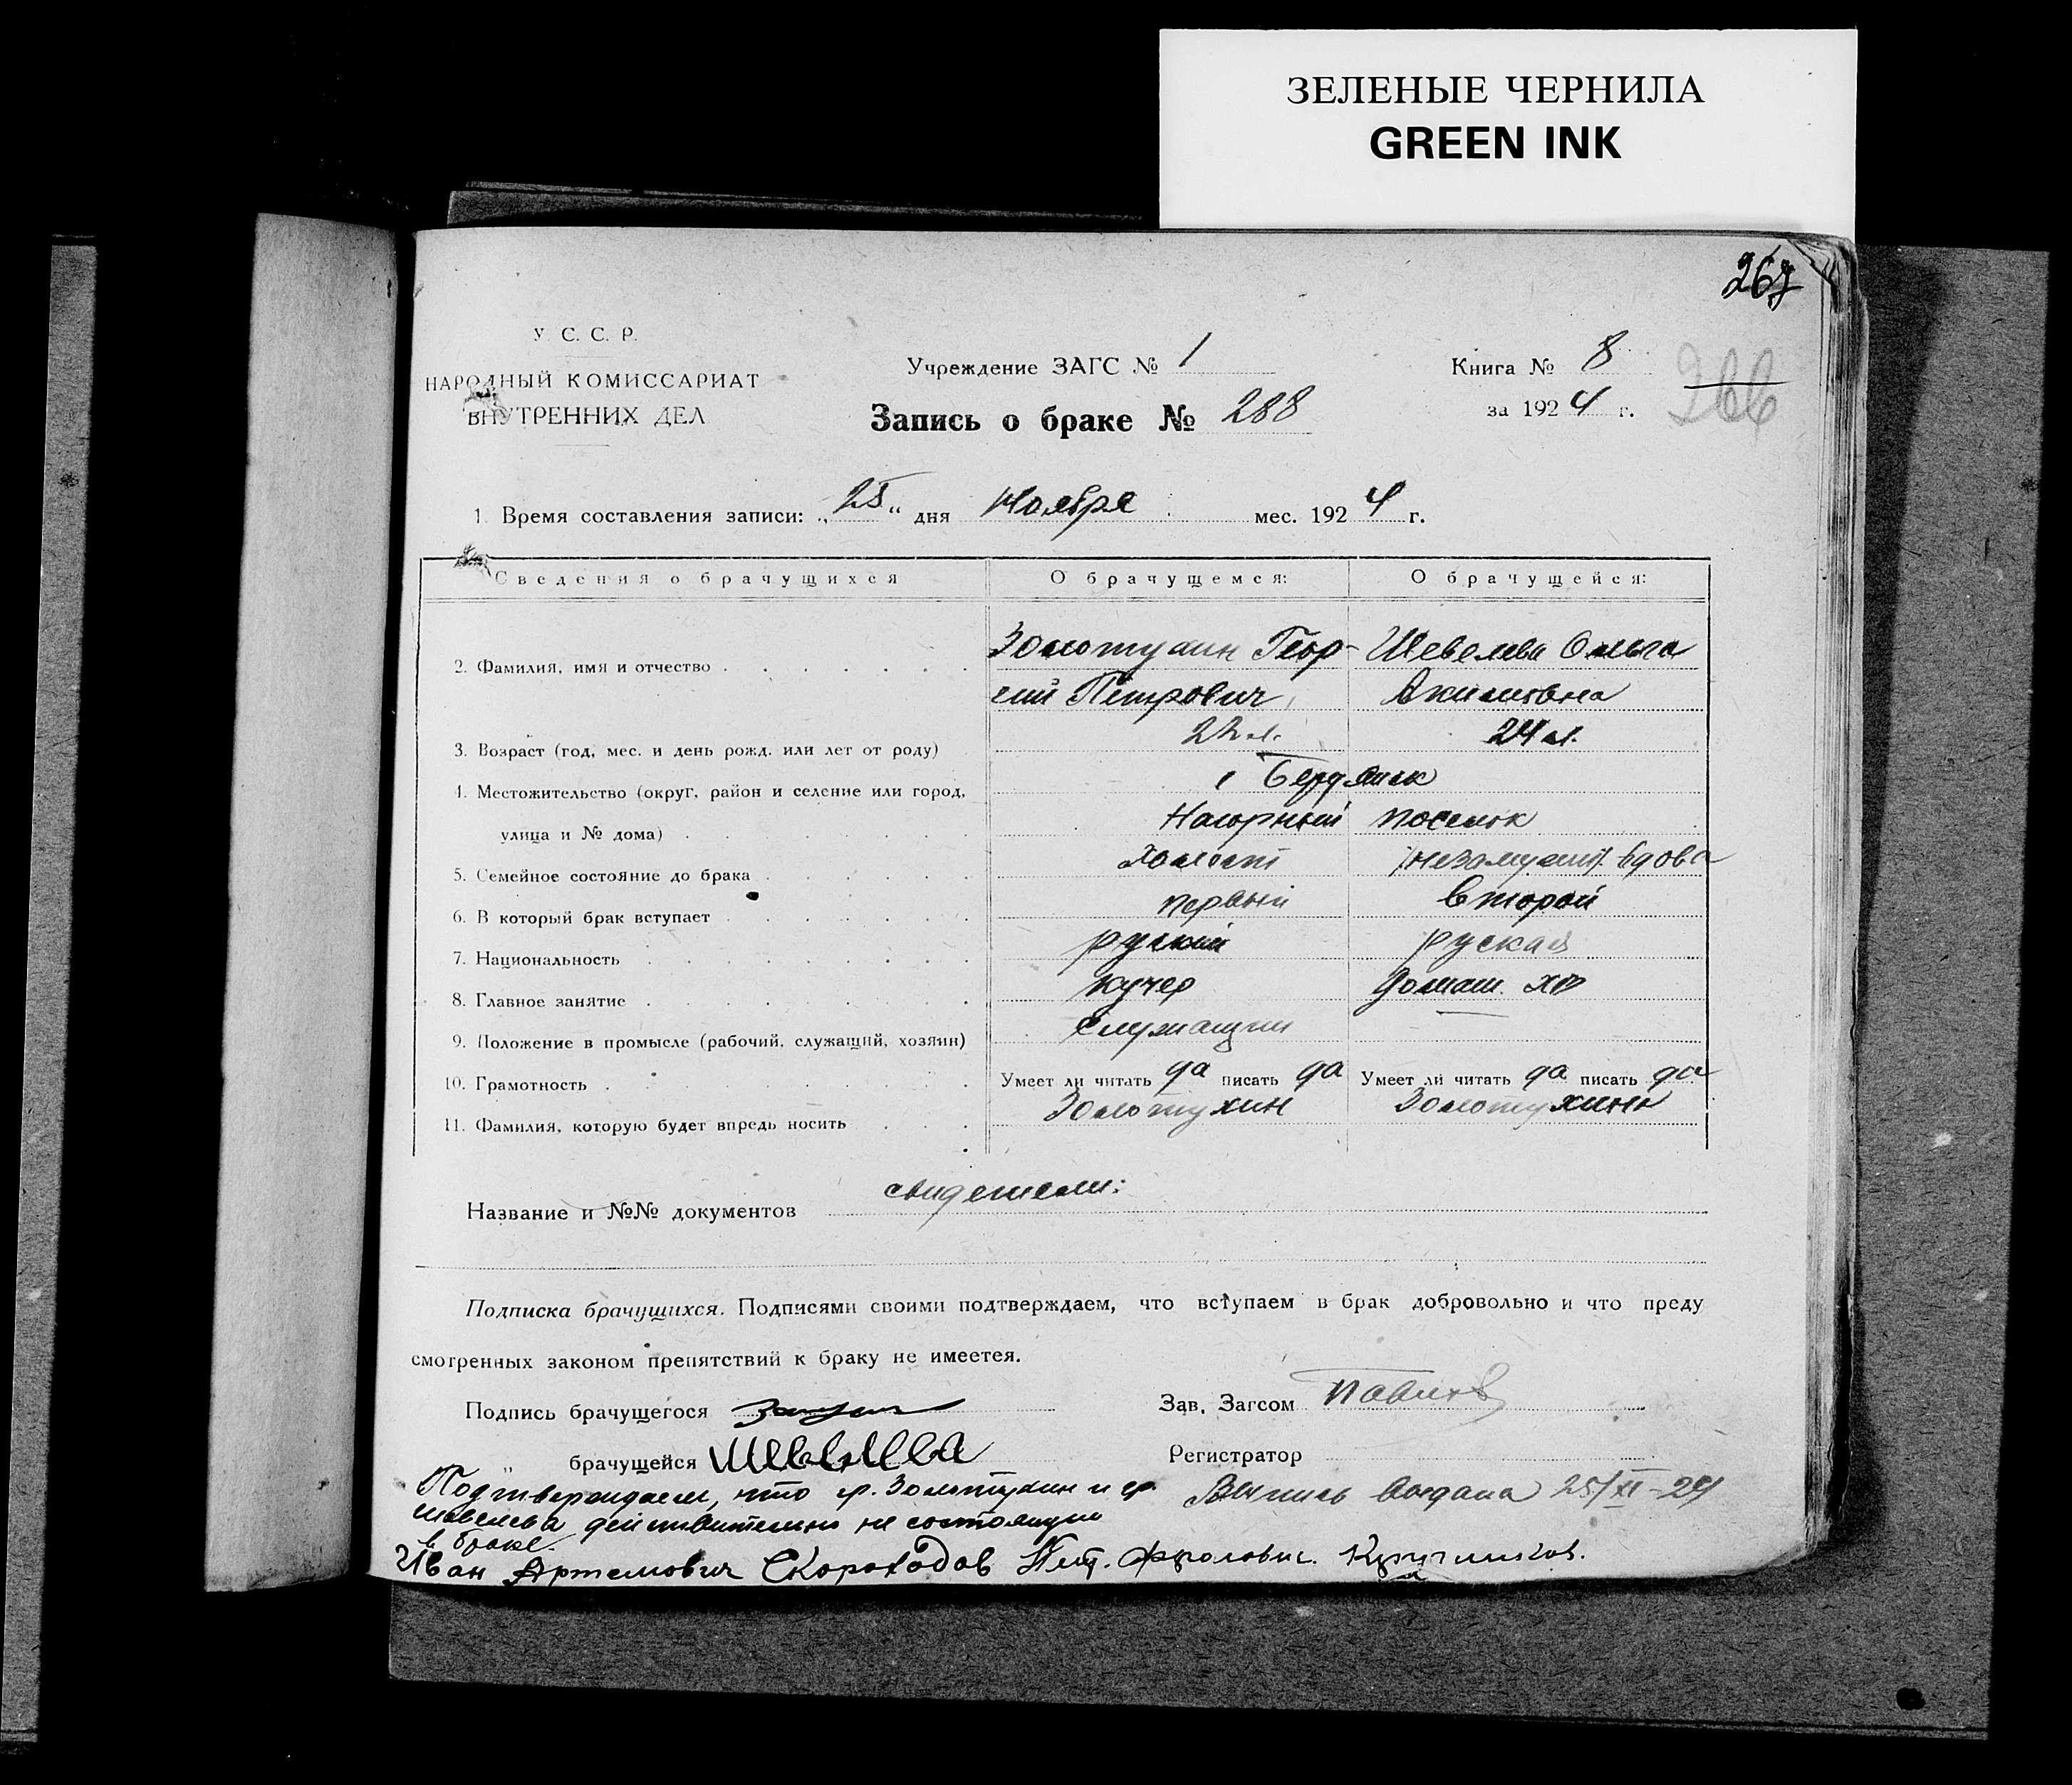 ЗЕЛЕНЫЕ ЧЕРНИЛА
GREEN INK
267
У. С. С. Р.
НАРОДНЫЙ КОМИССАРИАТ
ВНУТРЕННИХ ДЕЛ
Учреждение ЗАГС № 1
Запись о браке № 288
Книга № 8
за 1924 г.
266
1. Время составления записи: „25“ дня Ноября мес. 1924 г.
Сведения о брачущихся О брачущемся: О брачущейся:
2. Фамилия, имя и отчество Золотухин Геор- Шевелева Ольга
гий Петрович Акимовна
3. Возраст (год, мес. и день рожд. или лет от роду) 22 л. 24 л.
4. Местожительство (округ, район и селение или город, г Бердянск
улица и № дома) Нагорный поселок
5. Семейное состояние до брака холост вдова
6. В который брак вступает первый второй
7. Национальность руский руская
8. Главное занятие кучер домаш. хоз
9. Положение в промысле (рабочий, служащий, хозяин) служащий
10. Грамотность Умеет ли читать да писать да Умеет ли читать да писать да
11. Фамилия, которую будет впредь носить Золотухин Золотухина
Название и №№ документов свидетели:
Подписка брачущихся. Подписями своими подтверждаем, что вступаем в брак добровольно и что преду
смотренных законом препятствий к браку не имеется.
Подпись брачущегося
Зав. Загсом
„ брачущейся Шевелева
Регистратор
Подтверждаем, что гр. Золотухин и гр.
Шевелева действительно не состоящие
в браке.
Выпись выдана 25/XI-24
Иван Артемович Скороходов Фролович